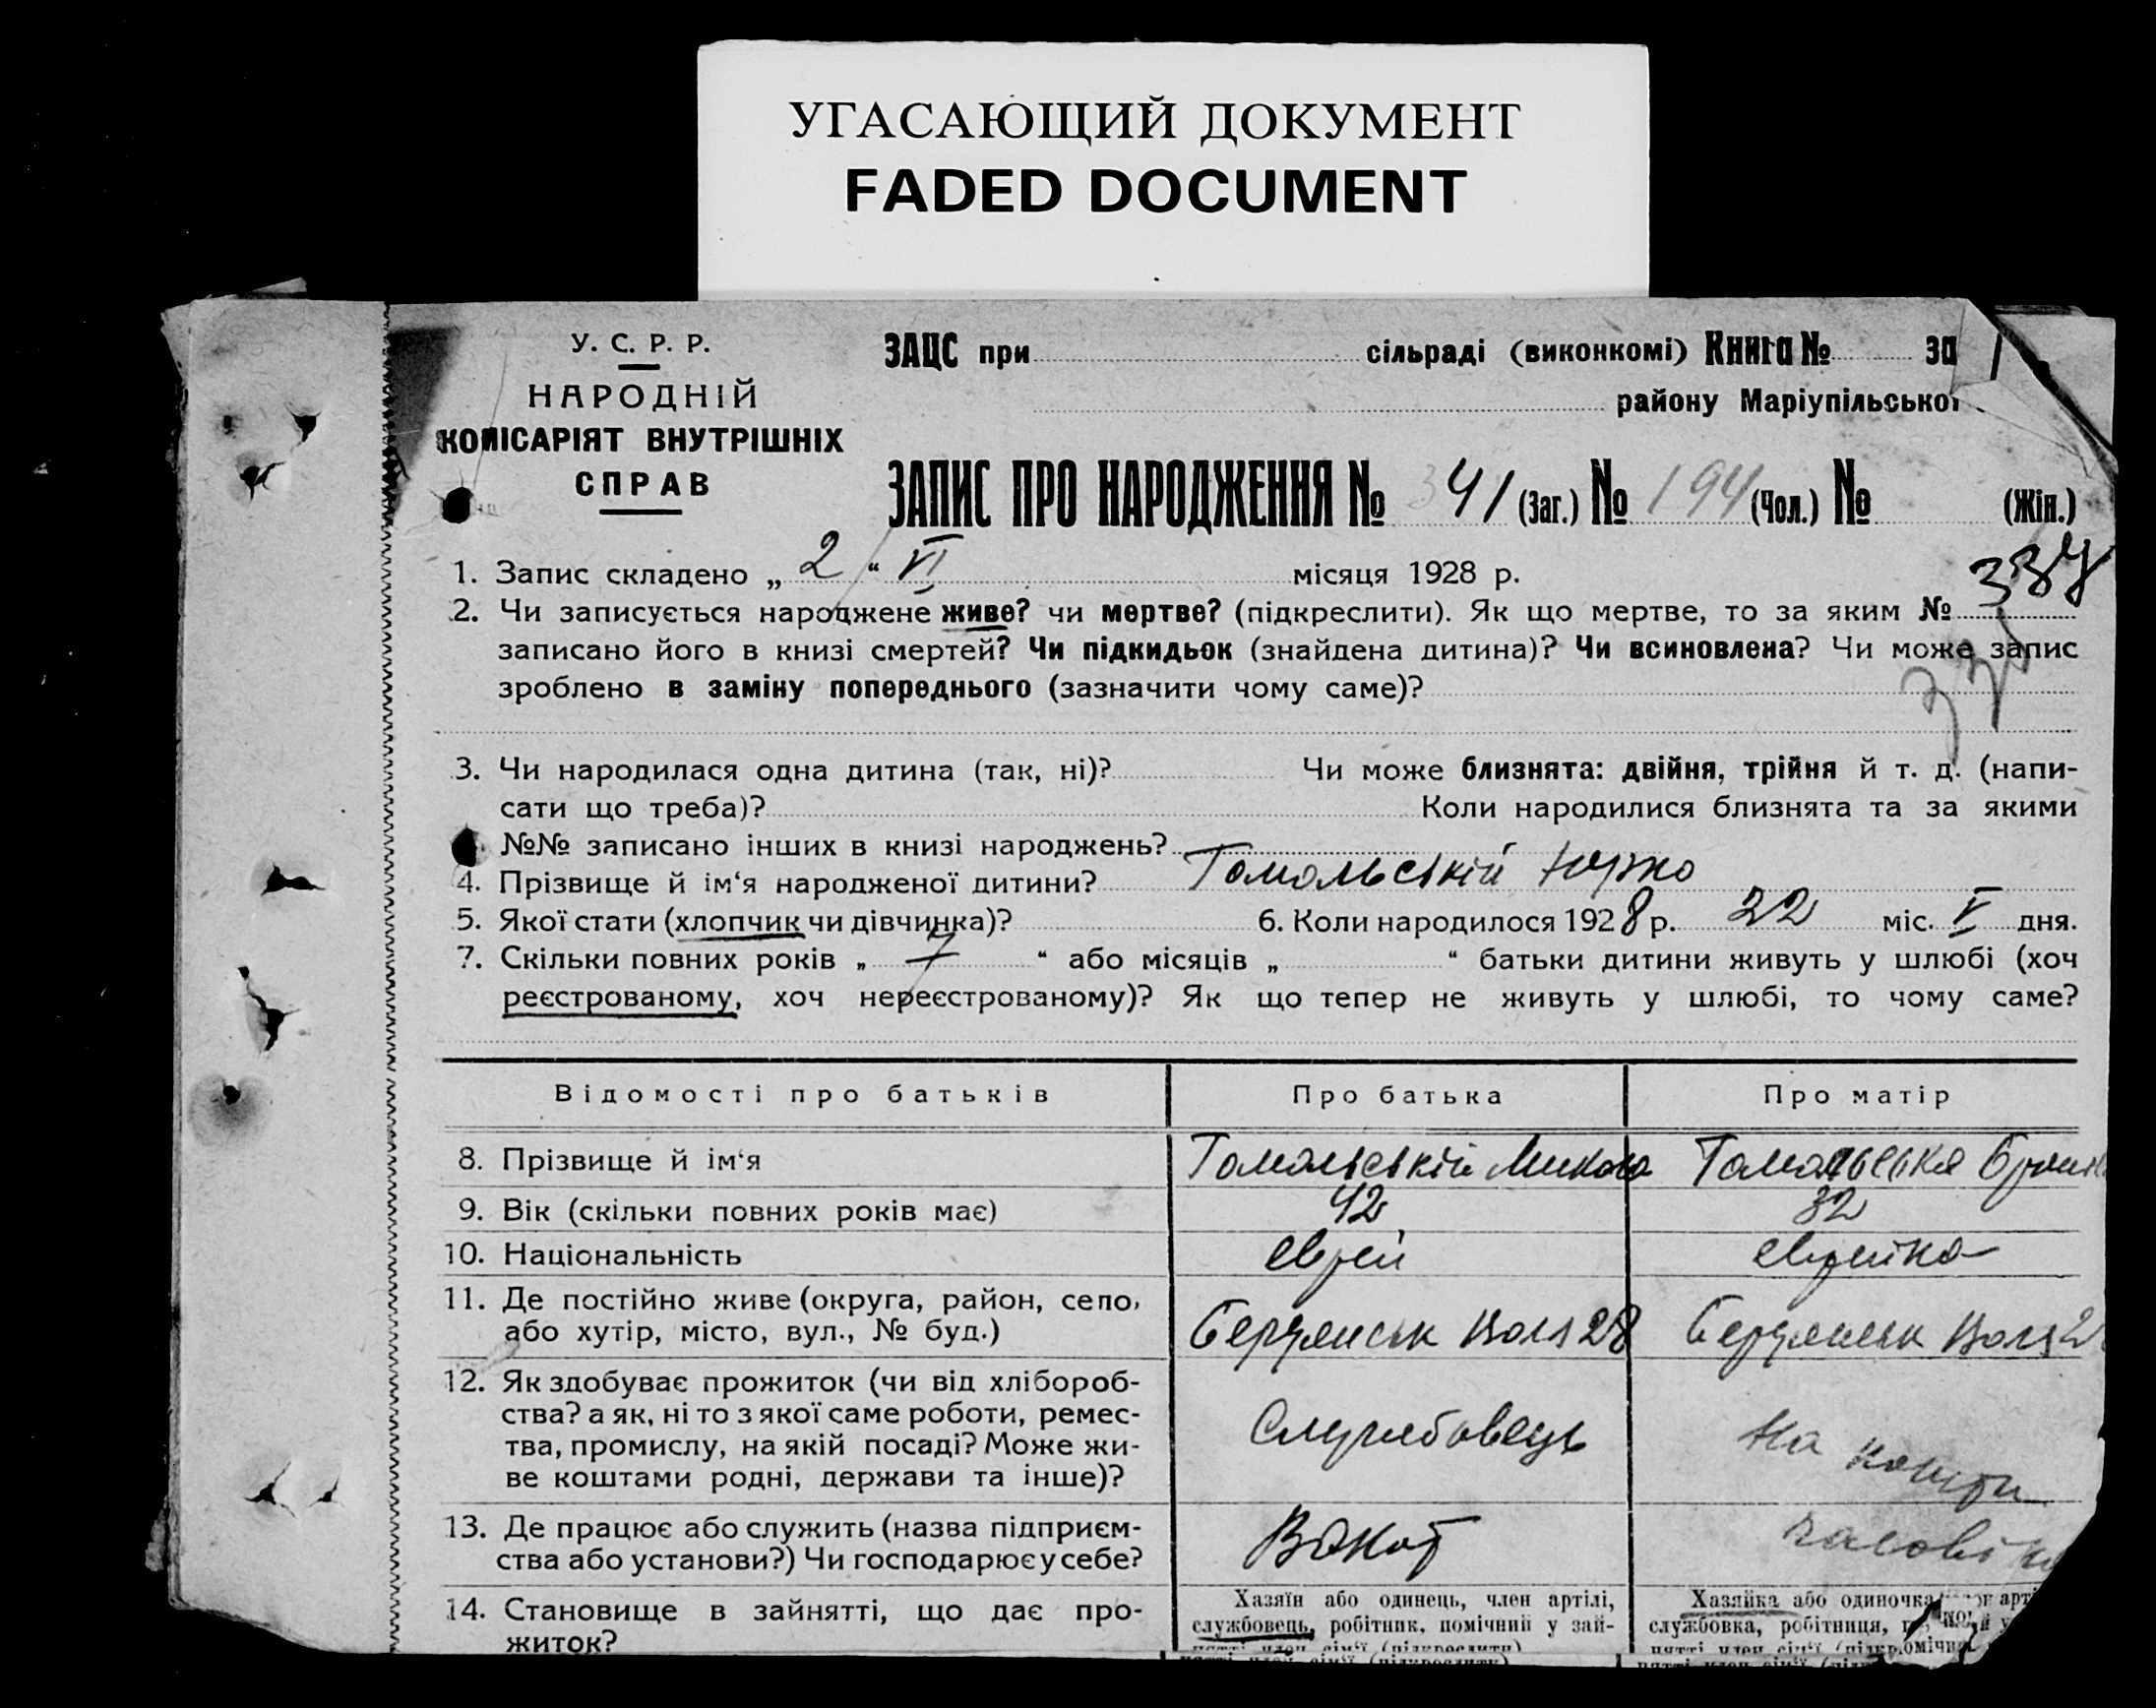 УГАСАЮЩИЙ ДОКУМЕНТ
FADED DOCUMENT
У. С. Р. Р.
НАРОДНІЙ
КОМІСАРІЯТ ВНУТРІШНІХ
СПРАВ
ЗАЦС при сільраді (виконкомі) Книга № за
району Маріупільської
ЗАПИС ПРО НАРОДЖЕННЯ № 341 (Заг.) № 194 (Чол.) № (Жін.)
1. Запис складено „ 2 “ VI місяця 1928 р.
337
2. Чи записується народжене живе? чи мертве? (підкреслити). Як що мертве, то за яким №
записано його в книзі смертей? Чи підкидьок (знайдена дитина)? Чи всиновлена? Чи може запис
зроблено в заміну попереднього (зазначити чому саме)?
3. Чи народилася одна дитина (так, ні)? Чи може близнята: двійня, трійня й т. д. (напи-
сати що треба)? Коли народилися близнята та за якими
№№ записано інших в книзі народжень?
4. Прізвище й ім‘я народженої дитини? Томольській Юрко
5. Якої стати (хлопчик чи дівчинка)? 6. Коли народилося 1928 р. 22 міс. V дня.
7. Скільки повних років „ 7 “ або місяців „ “ батьки дитини живуть у шлюбі (хоч
реєстрованому, хоч нереєстрованому)? Як що тепер не живуть у шлюбі, то чому саме?
Відомості про батьків Про батька Про матір
8. Прізвище й ім‘я Томольській Микола Томольська
9. Вік (скільки повних років має) 42 32
10. Національність еврей еврейка
11. Де постійно живе (округа, район, село,
або хутір, місто, вул., № буд.) Бердянськ 28 Бердянськ
12. Як здобуває прожиток (чи від хлібороб-
ства? а як, ні то з якої саме роботи, ремес-
тва, промислу, на якій посаді? Може жи-
ве коштами родні, держави та інше)? Службовець На кошти
13. Де працює або служить (назва підприєм-
ства або установи?) Чи господарює у себе?
14. Становище в зайнятті, що дає про-
житок?
Хазяїн або одинець, член артілі,
службовець, робітник, помічний у зай-
нятті член сім‘ї (підкреслити)
Хазяйка або одиночка
службовка, робітниця,